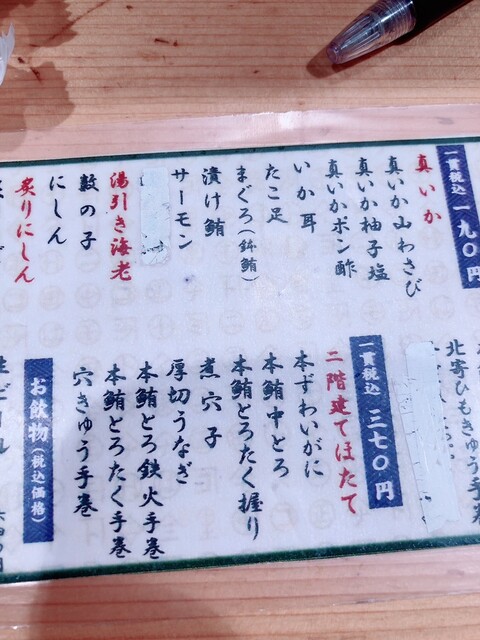 一貫税込 一九〇円
真いか
真いか山わさび
真いか柚子塩
真いかポン酢
いか耳
たこ足
まぐろ(鉢鮪)
漬け鮪
サーモン
湯引き海老
数の子
にしん
炙りにしん
北寄ひもきゅう手巻
一貫税込 三七〇円
二階建てほたて
本ずわいがに
本鮪中とろ
本鮪とろたく握り
煮穴子
厚切うなぎ
本鮪とろ鉄火手巻
本鮪とろたく手巻
穴きゅう手巻
お飲物(税込価格)